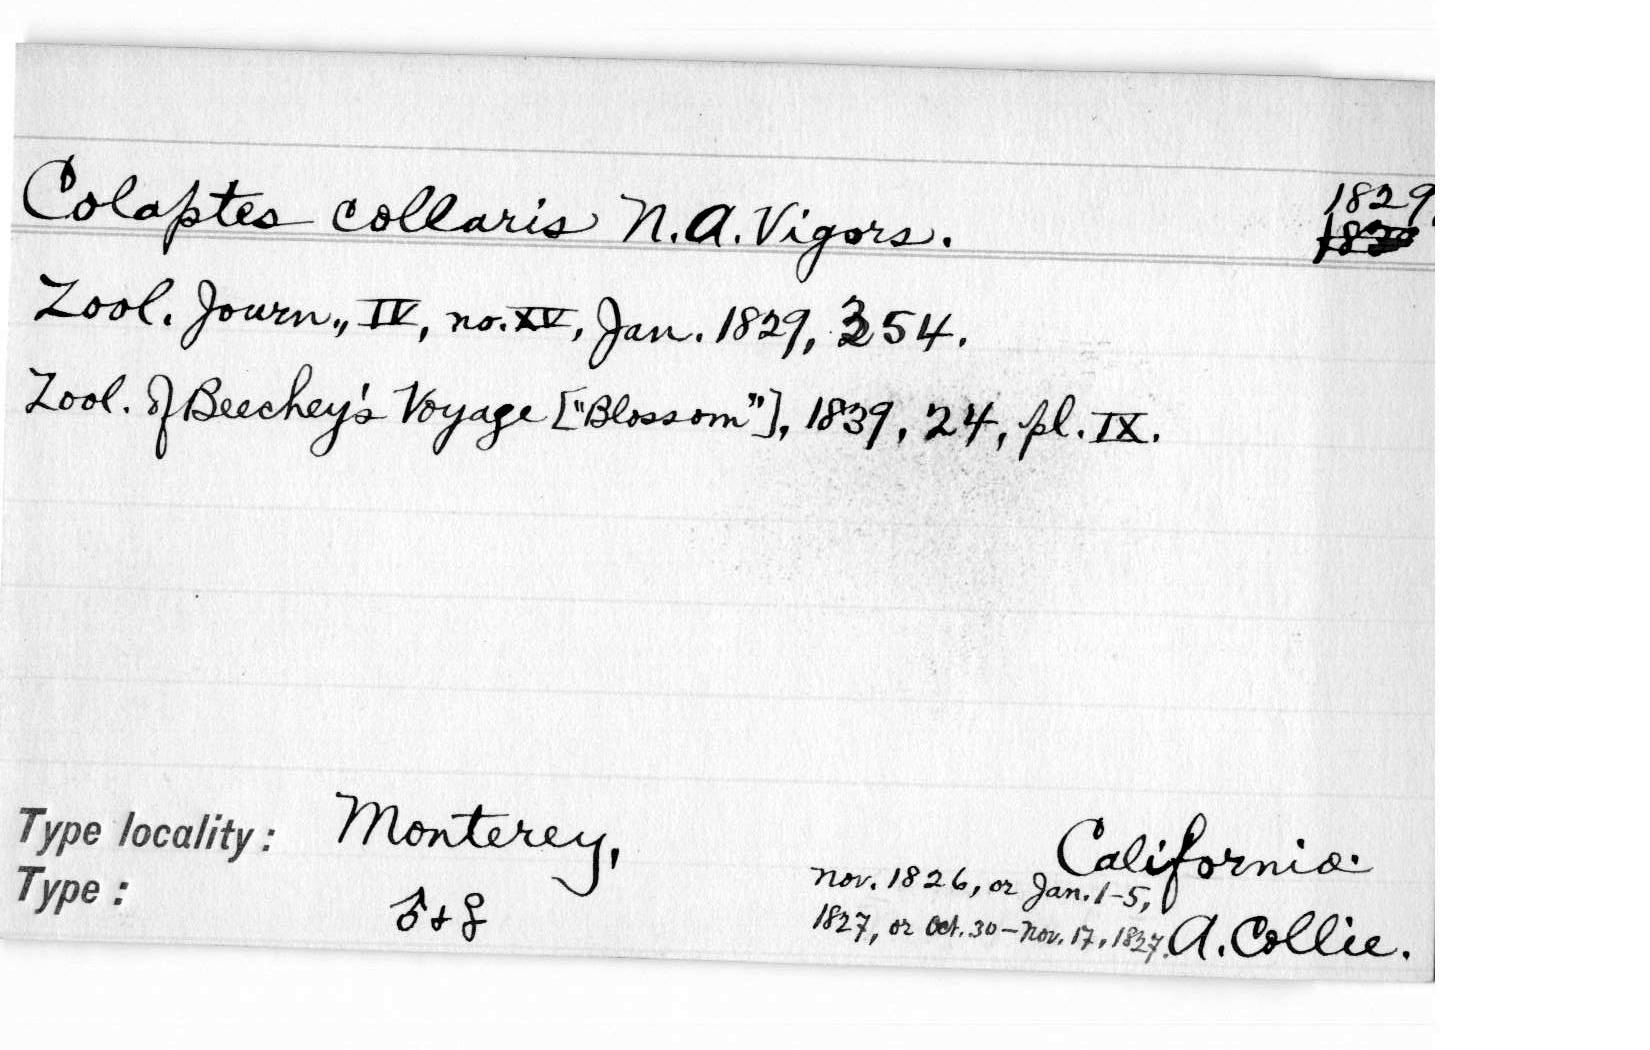 Colaptes collaris N.A. Vigors. 1829.
Zool. Journ., IV, no. XV, Jan. 1829, 354.
Zool. of Beechey's Voyage ["Blossom"], 1839, 24, pl. IX.
Type locality: Monterey, California.
Type: ♂ + ♀ Nov. 1826, or Jan. 1-5,
1827, or Oct. 30-Nov. 17, 1827. A. Collie.